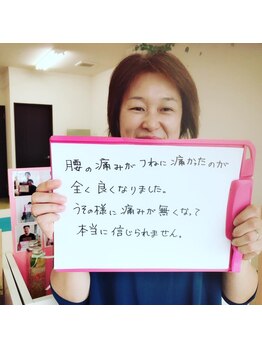 腰の痛みがつねに痛かたのが
全く良くなりました。
うその様に痛みが無くなって
本当に信じられません。